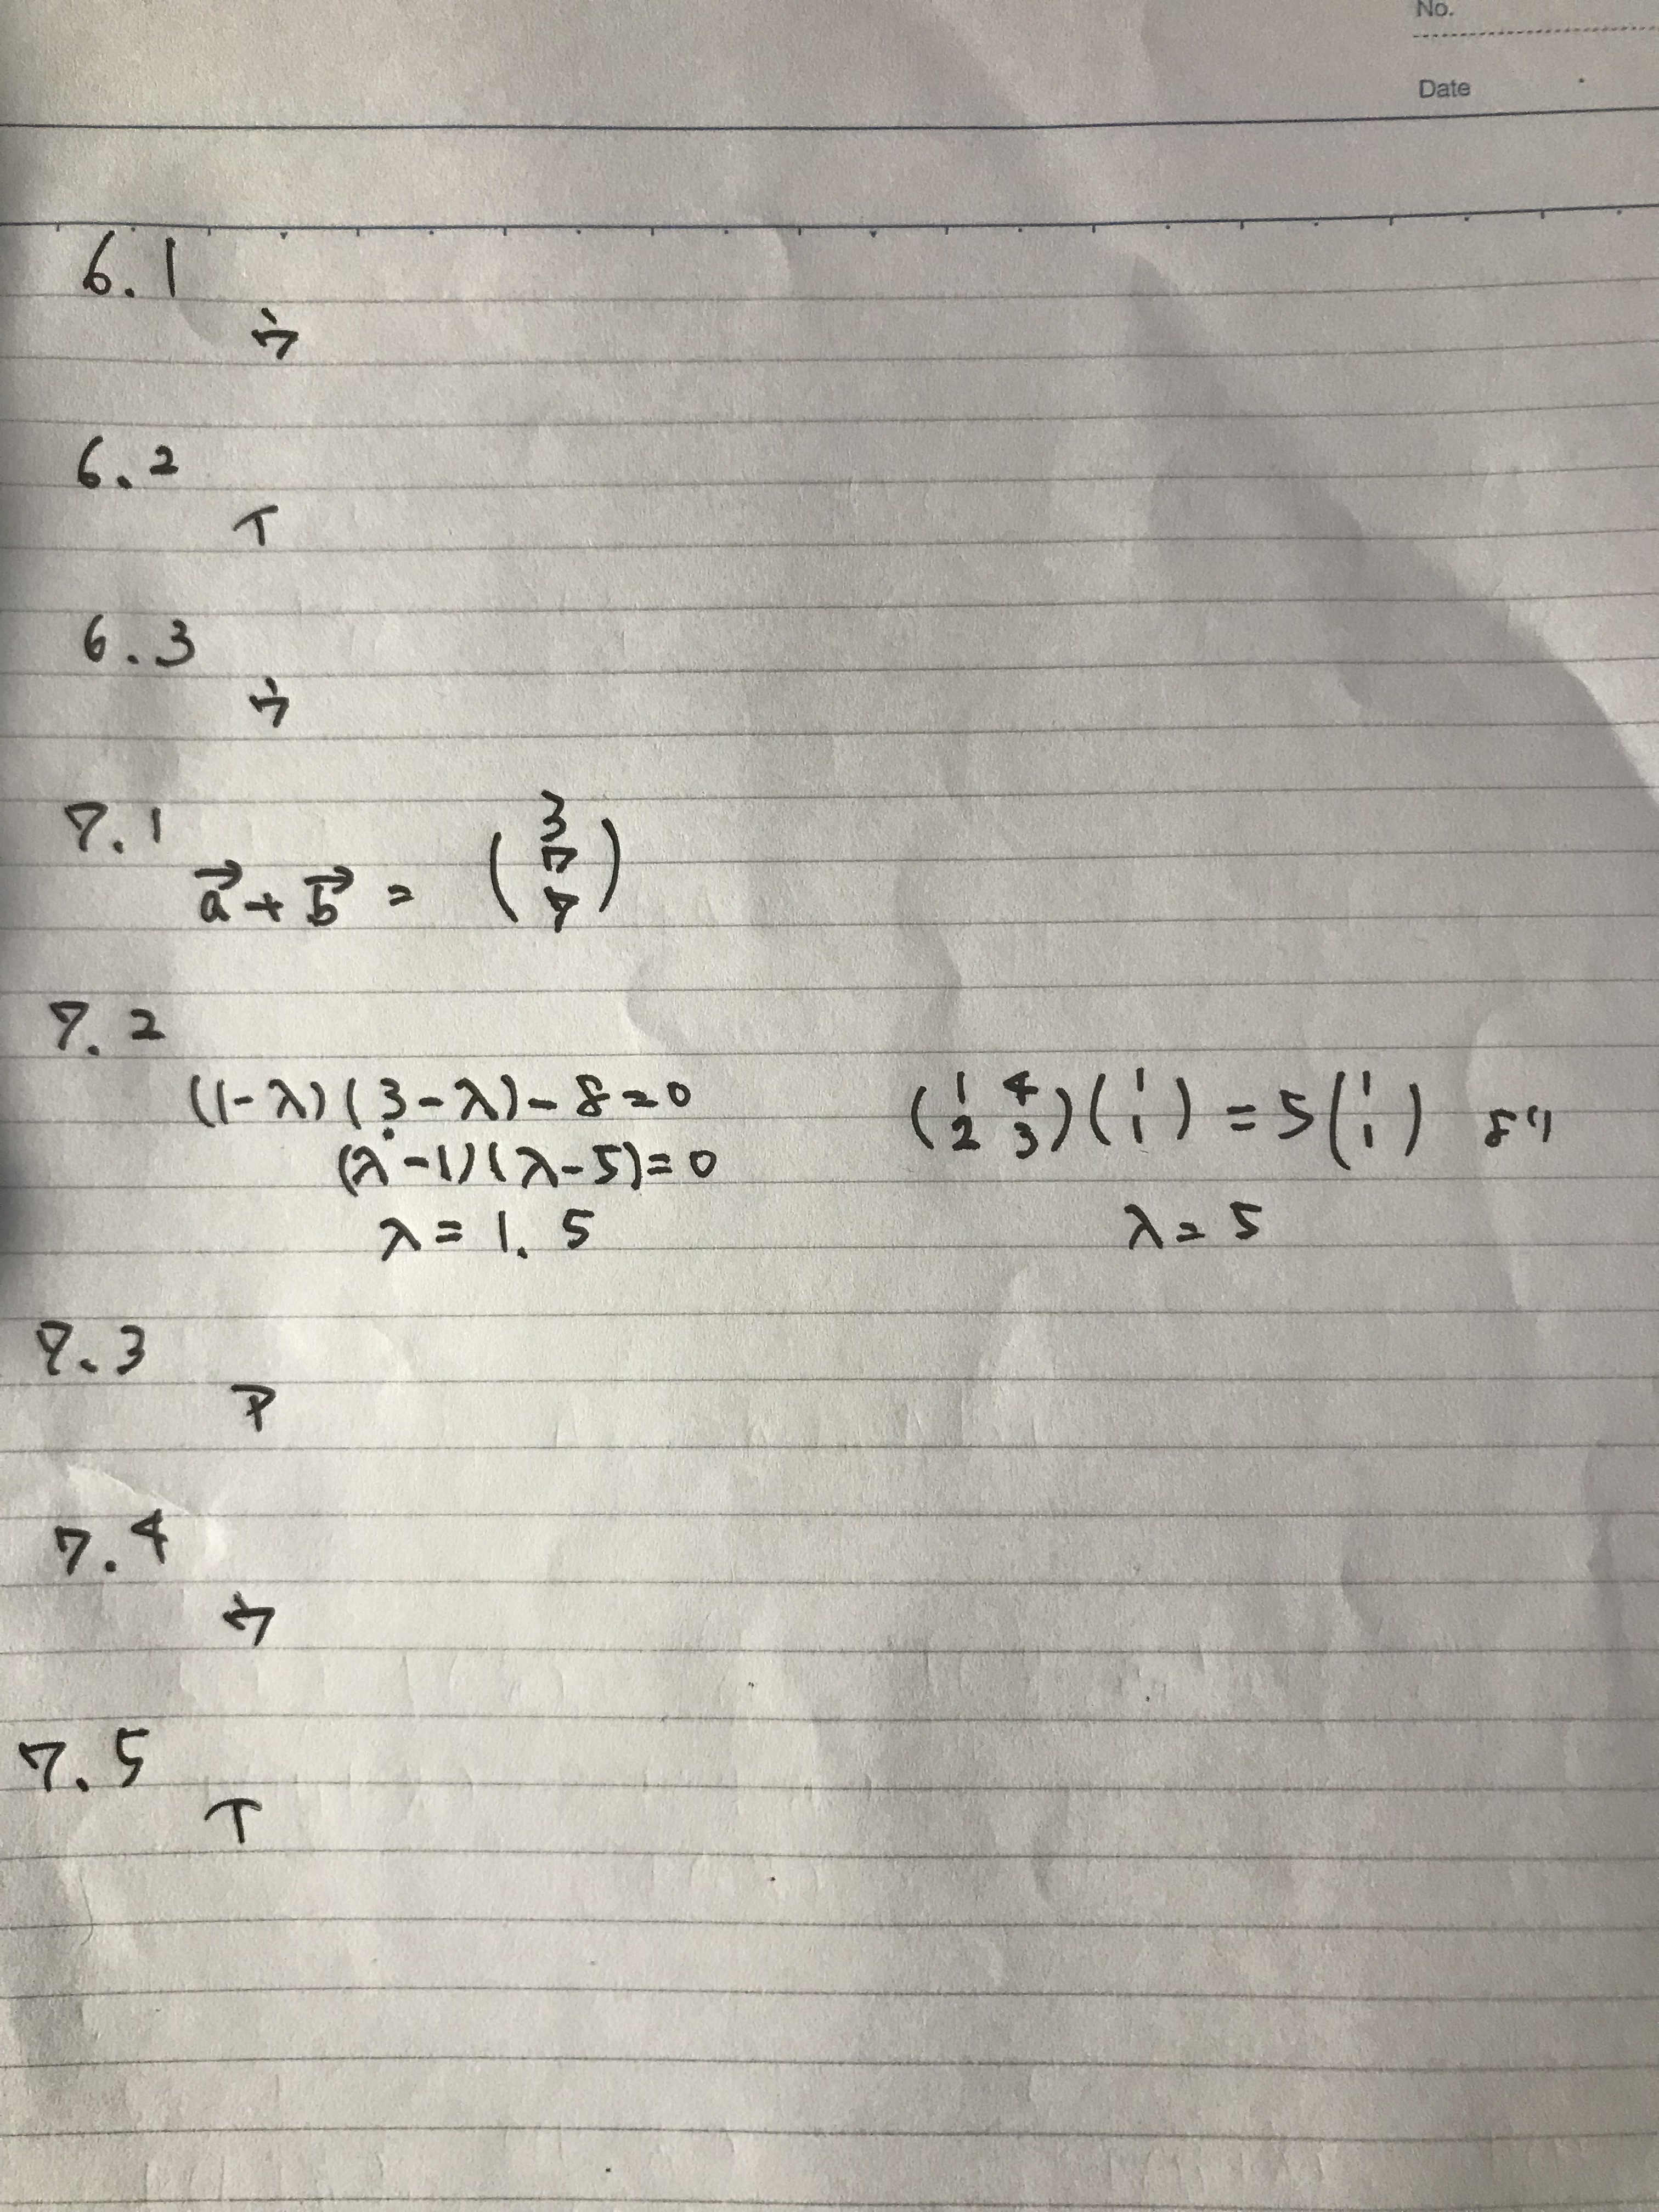 No.
Date
6.1
ウ
6.2
イ
6.3
ウ
7.1
3
a⃗ + b⃗ = ( 7 )
7
7.2
(1-λ)(3-λ)-8=0
(λ-1)(λ-5)=0
λ = 1. 5
1 4 1 1
( 2 3 )( 1 ) = 5( 1 ) より
λ = 5
7.3
ア
7.4
ウ
7.5
イ